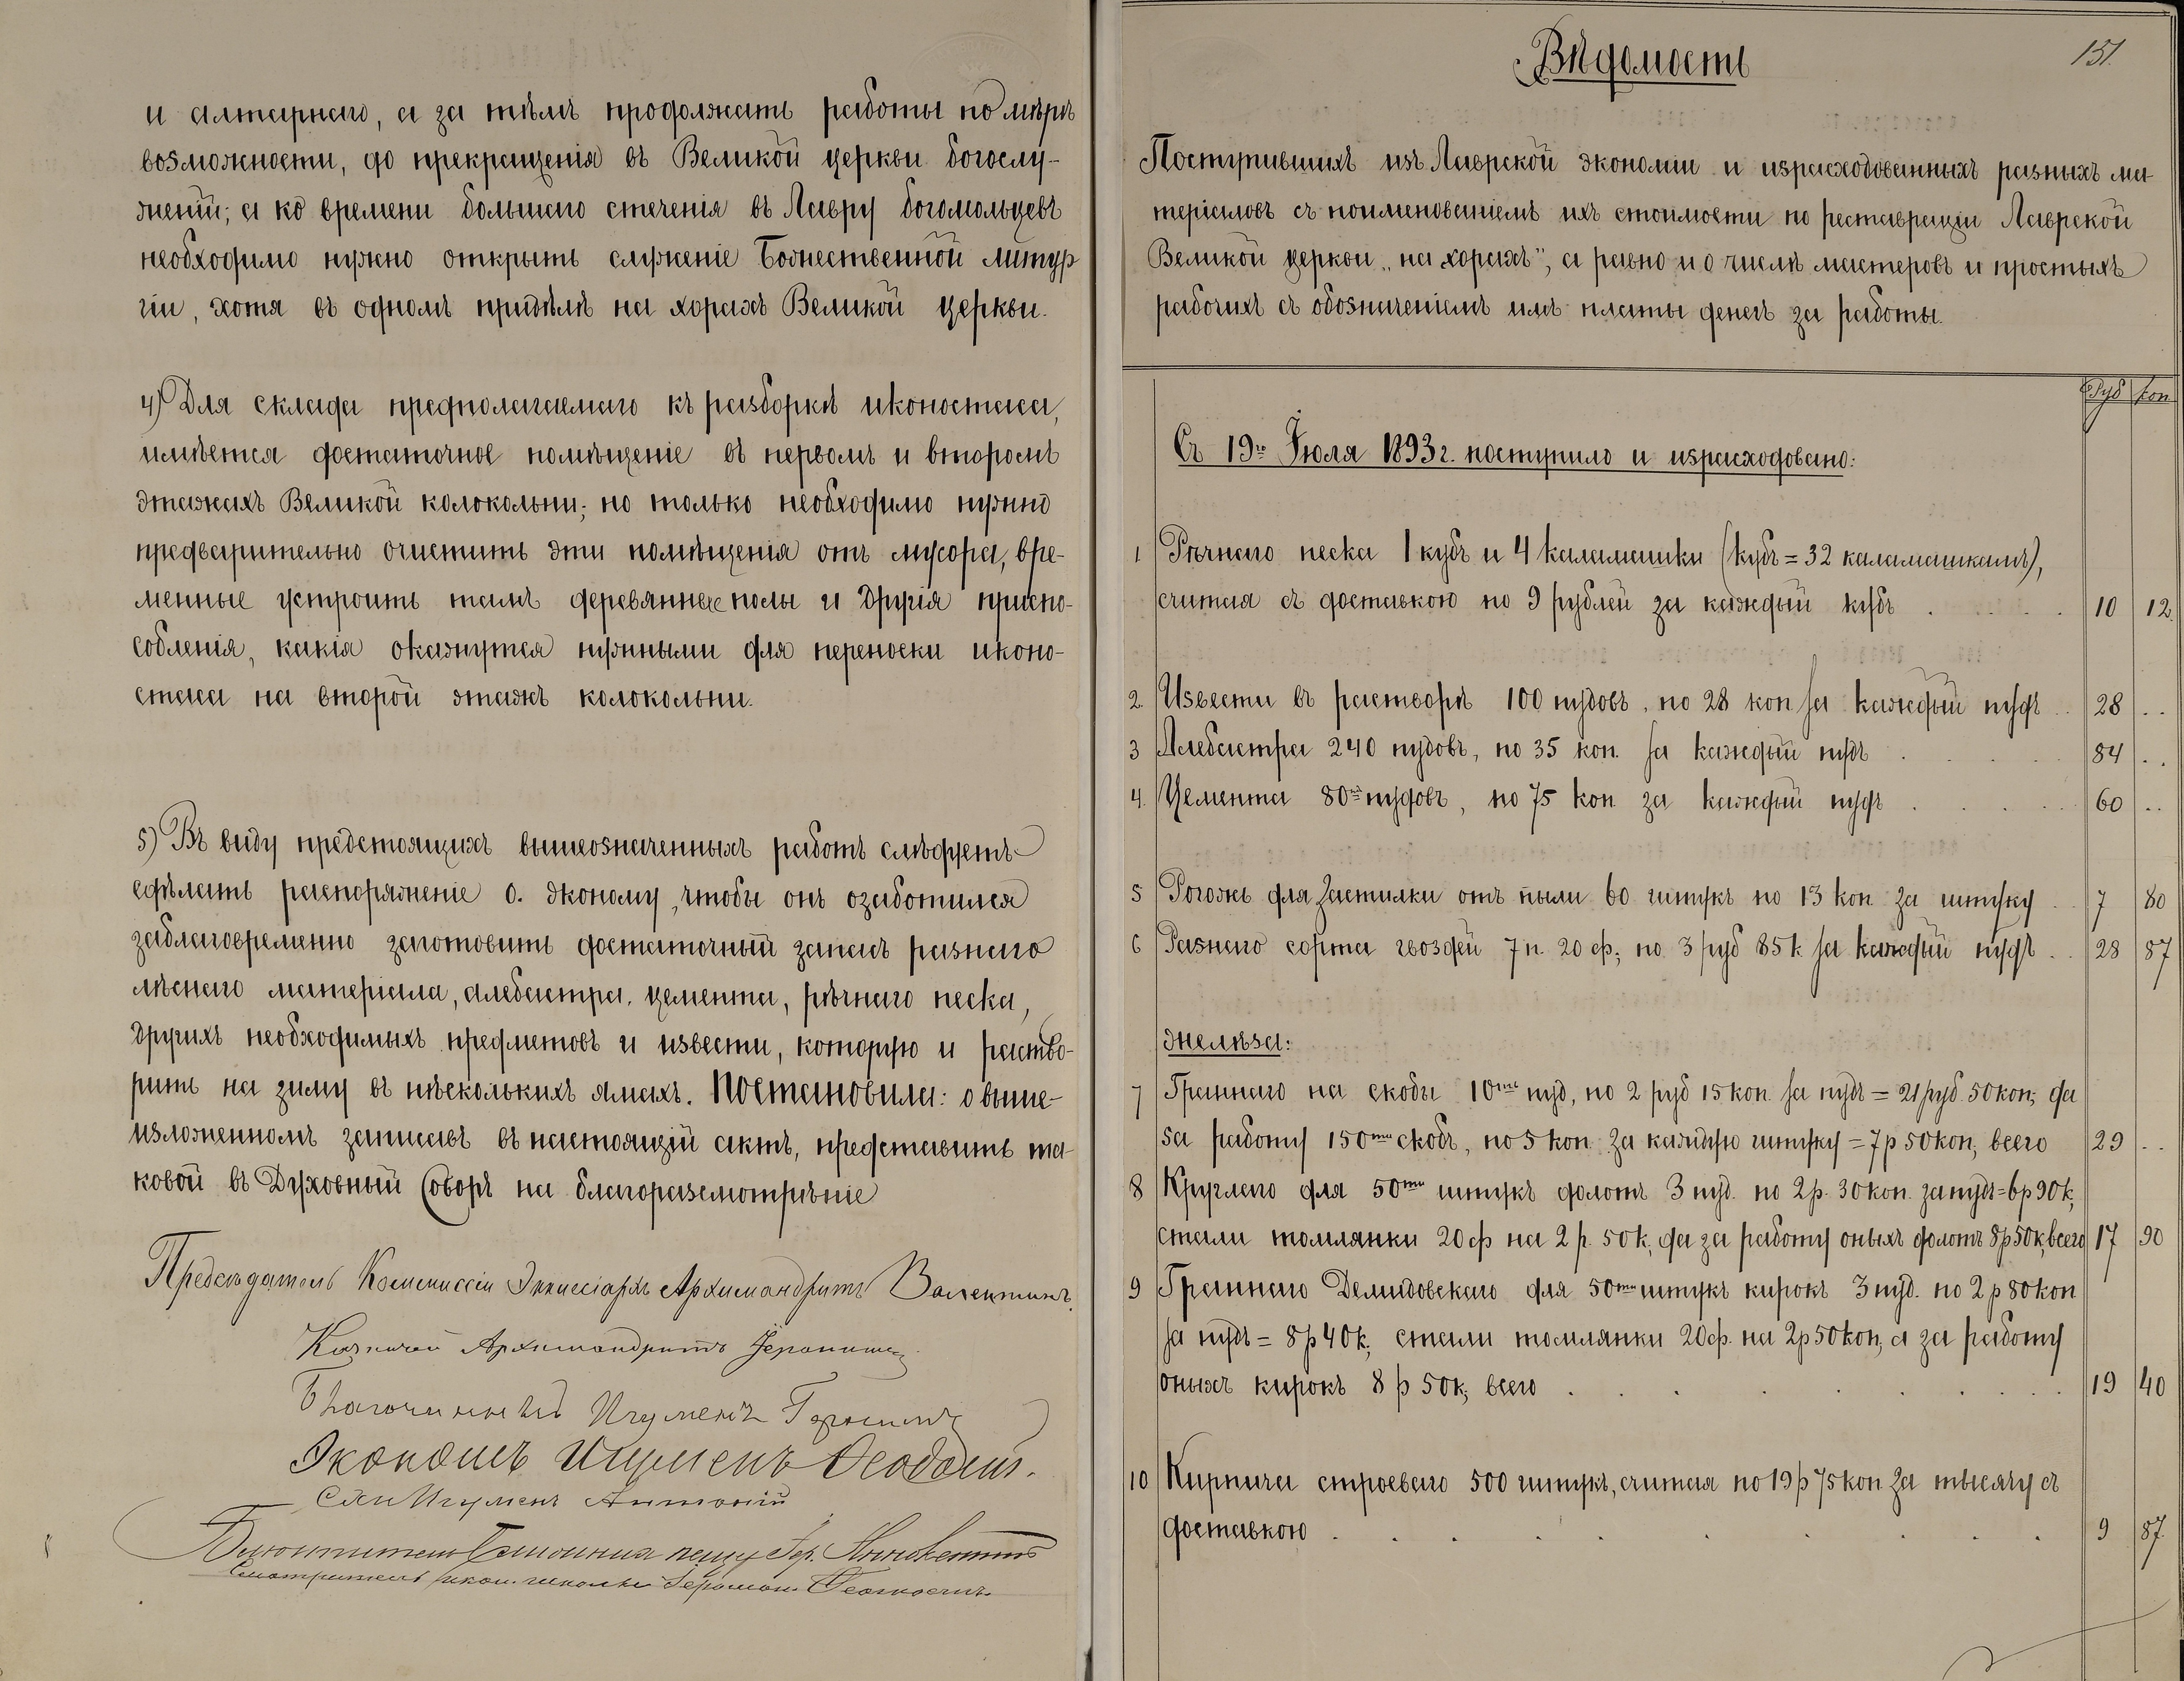 и алтарнаго, а за тѣмъ продолжать работы по мѣрѣ
возможности, до прекращенія въ Великой церкви богослу-
женій; а ко времени большаго стеченія въ Лавру богомольцевъ
необходимо нужно открыть служеніе Божественной литур
гіи, хотя въ одномъ придѣлѣ на хорахъ Великой церкви.
4) Для склада предполагаемаго къ разборкѣ иконостаса,
имѣется достаточное помѣщеніе въ первомъ и второмъ
этажахъ Великой колокольни; но только необходимо нужно
предварительно очистить эти помѣщенія отъ мусора, вре-
менные устроить тамъ деревянные полы и другія приспо-
собленія, какія окажутся нужными для переноски иконо-
стаса на второй этажъ колокольни.
5) Въ виду предстоящихъ вышеозначенныхъ работъ слѣдуетъ
сдѣлать распоряженіе о. Эконому, чтобы онъ озаботился
заблаговременно заготовить достаточный запасъ разнаго
лѣснаго матеріала, алебастра, цемента, рѣчнаго песка,
другихъ необходимыхъ предметовъ и извести, которую и раство-
рить на зиму въ нѣсколькихъ ямахъ. Постановила: о выше-
изложенномъ записавъ въ настоящій актъ, представить та-
ковой въ Духовный Соборъ на благоразсмотрѣніе
Предсѣдатель Коммиссіи Экклесіархъ Архимандритъ Валентинъ.
Казначей Архимандритъ Іеронимъ
Благочинный Игуменъ
Экономъ Игуменъ Ѳеодосій.
Игуменъ Антоній
Іер. Иннокентій
Смотритель икон. школы Іеромон.
Вѣдомость
151.
Поступившихъ изъ Лаврской экономіи и израсходованныхъ разныхъ ма-
теріаловъ съ поименованіемъ ихъ стоимости по реставраціи Лаврской
Великой церкви „на хорахъ", а равно и о числѣ мастеровъ и простыхъ
рабочихъ съ обозначеніемъ имъ платы денегъ за работы.
Руб коп
Съ 19го Іюля 1893 г. поступило и израсходовано:
1 Рѣчнаго песка 1 кубъ и 4 каламашки (кубъ = 32 каламашкамъ),
считая съ доставкою по 9 рублей за каждый кубъ . . . . 10 12.
2. Извести въ растворѣ 100 пудовъ, по 28 коп за каждый пудъ . . 28 . .
3 Алебастра 240 пудовъ, по 35 коп. за каждый пудъ . . . . 84 . .
4. Цемента 80ть пудовъ, по 75 коп за каждый пудъ . . . . 60 . .
5 Рогожъ для застилки отъ пыли 60 штукъ по 13 коп за штуку . . 7 80
6 Разнаго сорта гвоздей 7 п. 20 ф; по 3 руб 85 к. за каждый пудъ . . 28 87
Желѣза:
7 Граннаго на скобы 10ти пуд, по 2 руб 15 коп. за пудъ = 21 руб. 50 коп; да
за работу 150ти скобъ, по 5 коп. за каждую штуку = 7 р 50 коп; всего 29 . .
8 Круглаго для 50ти штукъ долотъ 3 пуд. по 2 р. 30 коп. за пудъ = 6 р 90 к;
стали томлянки 20 ф на 2 р. 50 к; да за работу оныхъ долотъ 8 р 50 к; всего 17 90
9 Граннаго Демидовскаго для 50ти штукъ кирокъ 3 пуд. по 2 р 80 коп
за пудъ = 8 р 40 к; стали томлянки 20 ф. на 2 р 50 коп; а за работу
оныхъ кирокъ 8 р 50 к; всего . . . . . . . 19 40
10 Кирпича строеваго 500 штукъ, считая по 19 р 75 коп за тысячу съ
доставкою . . . . . . . . 9 87.